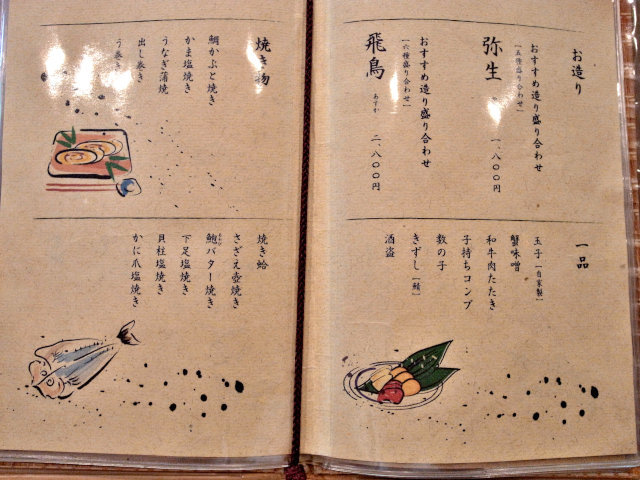 お造り
おすすめ造り盛り合わせ
［五種盛り合わせ］
弥生
一、八〇〇円
おすすめ造り盛り合わせ
［六種盛り合わせ］
飛鳥
あすか
二、八〇〇円
一品
玉子［自家製］
蟹味噌
和牛肉たたき
子持ちコンブ
数の子
きずし［鯖］
酒盗
焼き物
鯛かぶと焼き
かま塩焼き
うなぎ蒲焼
出し巻き
う巻き
焼き蛤
さざえ壺焼き
鮑バター焼き
下足塩焼き
貝柱塩焼き
かに爪塩焼き